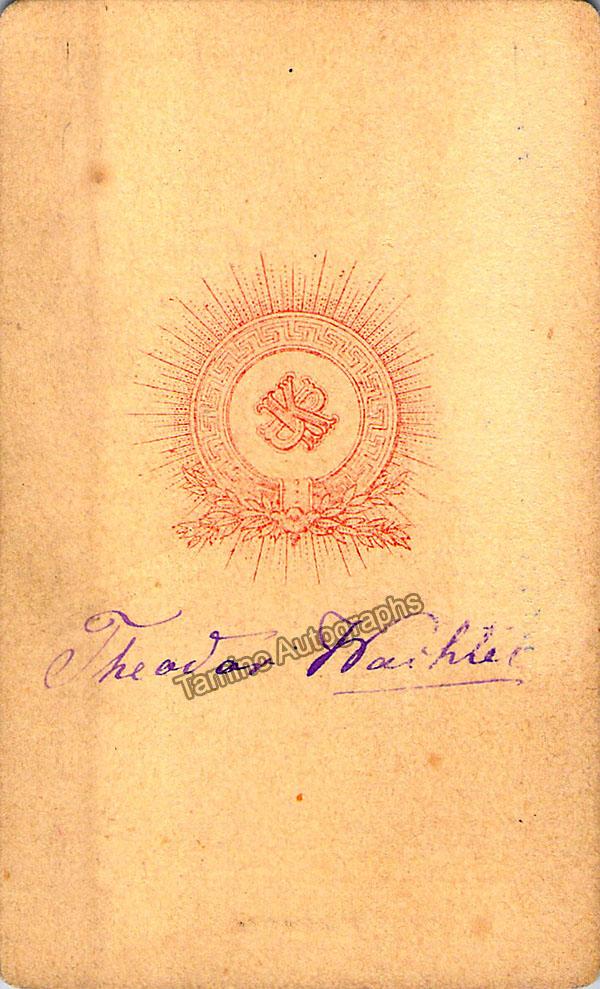 Theodor Wachtel
Tamino Autographs